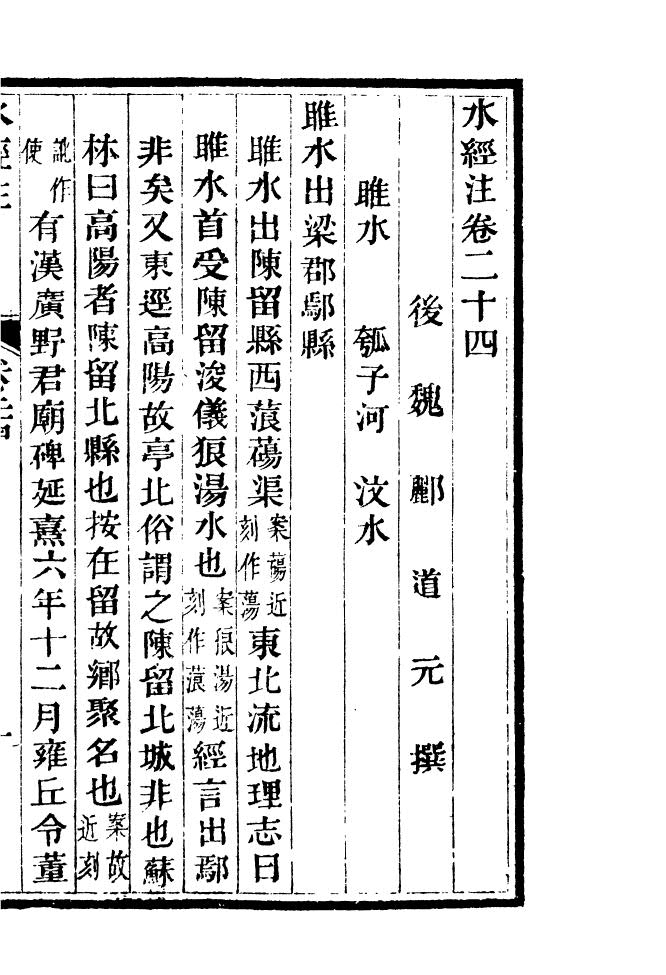 水經注卷二十四
後魏酈道元撰
睢水　瓠子河　汶水
睢水出梁郡鄢縣
睢水出陳留縣西蒗蕩渠案蕩近刻作蕩東北流地理志曰
睢水首受陳留浚儀狼湯水也案狼湯近刻作蒗蕩經言出鄢
非矣又東逕高陽故亭北俗謂之陳留北城非也蘇
林曰高陽者陳留北縣也按在留故鄉聚名也案故近刻
訛作使有漢廣野君廟碑延熹六年十二月雍丘令董
水經注　卷二十四　一